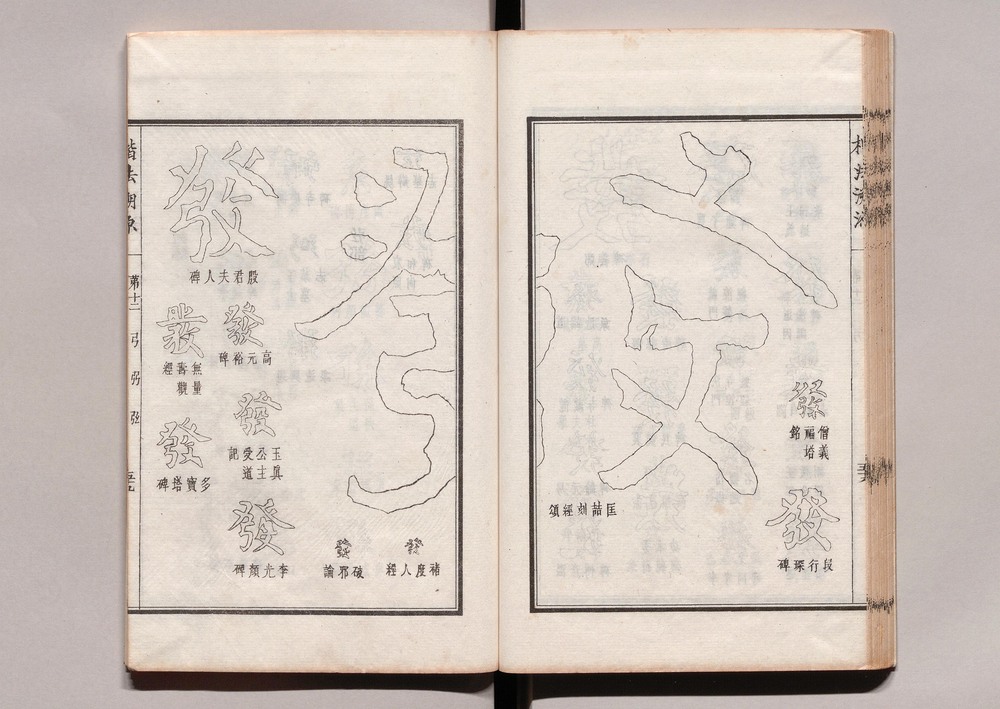 發
僧義福塔銘
發
段行琛碑
發
匡喆刻經頌
發
褚度人經
發
破邪論
發
殷君夫人碑
發
高元裕碑
發
玉眞公主受道記
發
李光顏碑
發
無量壽觀經
發
多寶塔碑
楷法溯源
第十二
弓